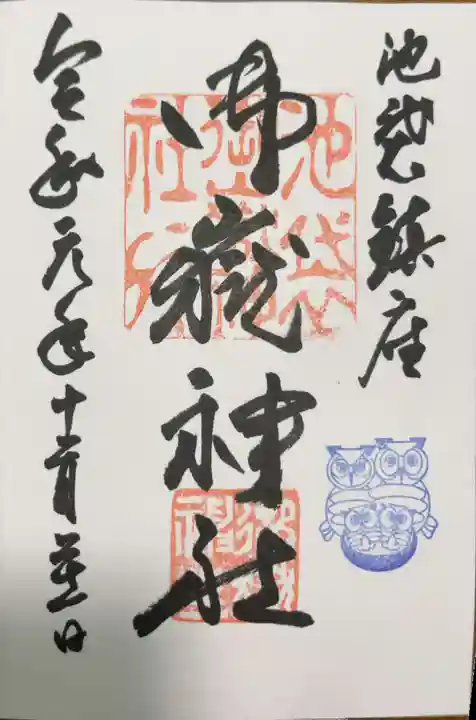 池袋鎮座
御嶽神社
令和元年十日